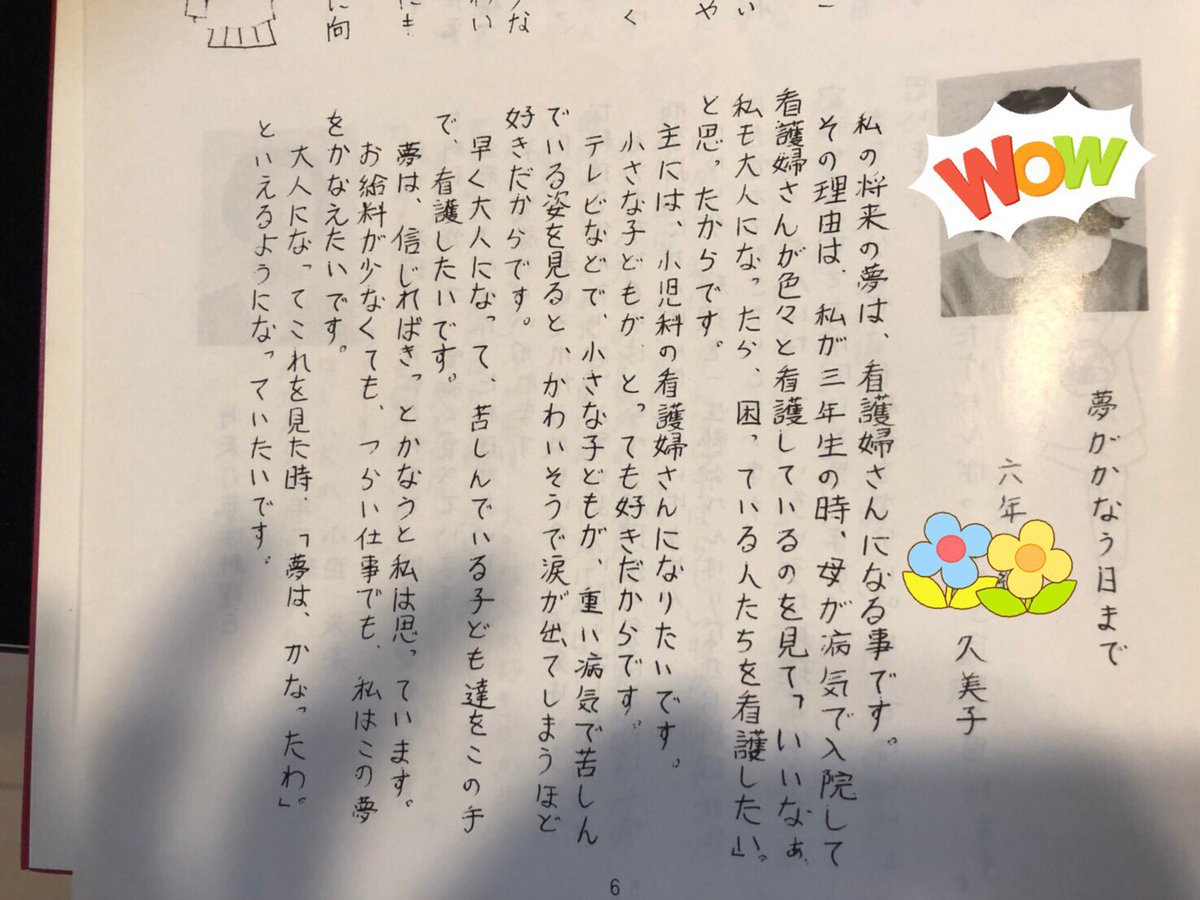 夢がかなう日まで
六年
久美子
私の将来の夢は、看護婦さんになる事です。
その理由は、私が三年生の時、母が病気で入院して
看護婦さんが色々と看護しているのを見て「いいなぁ、
私も大人になったら、困っている人たちを看護したい」。
と思ったからです。
主には、小児科の看護婦さんになりたいです。
小さな子どもが、とっても好きだからです。
テレビなどで、小さな子どもが、重い病気で苦しん
でいる姿を見ると、かわいそうで涙が出てしまうほど
好きだからです。
早く大人になって、苦しんでいる子ども達をこの手
で、看護したいです。
夢は、信じればきっとかなうと私は思っています。
お給料が少なくても、つらい仕事でも、私はこの夢
をかなえたいです。
大人になってこれを見た時、「夢は、かなったわ」。
といえるようになっていたいです。
WOW
い
や
く
うな
わい
にも
に向
6